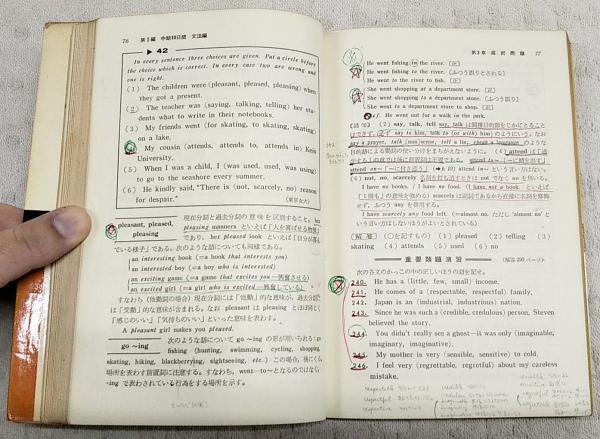 76 第1編 中期19日間 文法編
▶ 42
In every sentence three choices are given. Put a circle before
the choice which is correct. In every case two are wrong and
one is right.
(1) The children were (pleasant, pleased, pleasing) when
they got a present.
(2) The teacher was (saying, talking, telling) her stu-
dents what to write in their notebooks.
(3) My friends went (for skating, to skating, skating)
on a lake.
(4) My cousin (attends, attends to, attends in) Keio
University.
(5) When I was a child, I (was used, used, was using)
to go to the seashore every summer.
(6) He kindly said, "There is (not, scarcely, no) reason
for despair."
(東京女大)
pleasant, pleased,
pleasing
現在分詞と過去分詞の意味を区別すること。her
pleasing manners といえば「人を喜ばせる態度」
であり, her pleased look といえば「自分が喜ん
でいる様子」である。次のような語についても同様である。
an interesting book (=a book that interests you)
an interested boy (=a boy who is interested)
an exciting game (=a game that excites you—興奮させる)
an excited girl (=a girl who is excited—興奮している)
すなわち (他動詞の場合) 現在分詞には「他動」的な意味が, 過去分詞に
は「受動」的な意味が含まれる。なお pleasant は pleasing とほぼ同じく
「感じのいい」「気持ちのいい」といった意味を表わす。
A pleasant girl makes you pleased.
go ~ing
次のような語について go ~ing の形が用いられる: go
fishing (hunting, swimming, cycling, shopping,
skating, hiking, blackberrying, sightseeing, etc.) この場合, 後にくる
場所を表わす前置詞に注意する。すなわち, went to~となるのではなく
-ing で表わされている行為をする場所を示す。
第3章 選択問題 77
He went fishing in the river. [正]
He went fishing to the river. (ふつう誤りとされる)
He went to the river to fish. [正]
She went shopping at a department store. [正]
She went shopping to a department store. (ふつう誤り)
She went to a department store to shop. [正]
cf. He went out for a walk in the park.
[語句] (2) say, talk, tell say, talk は間接目的語をじかにとること
はできず, 必ず say to him, talk to (or with) him のようにいう。なお
say a prayer, talk [non]sense, tell a lie, speak a language のよう
な目的語による動詞の使い分けをまちがえないように。(4) attend は「通
学する」の意では後に前置詞は不要である。attend to~「~に精を出す」
attend on~「~に付き添う」(➡p.10) attend in~ という言い方はない。
(6) not, no, scarcely 名詞を打ち消すときは not でなく no を用いる。
I have no books. / I have no food. (I have not a book. といえば
「1冊も」の意味を強める) scarcely は副詞であるから直接に名詞を修飾
せず, ふつう any を併用する。
I have scarcely any food left. (=almost no. ただし 'almost no' と
いう言い方はしないほうがよいとされている)
[解答] (○を記すもの) (1) pleased (2) telling (3)
skating (4) attends (5) used (6) no
重要類題演習 (解答250ページ)
次の各文のかっこの中の正しいほうの語を記せ。
240. He has a (little, few, small) income.
241. He comes of a (respectable, respectful) family.
242. Japan is an (industrial, industrious) nation.
243. Since he was such a (credible, credulous) person, Steven
believed the story.
244. You didn't really see a ghost—it was only (imaginable,
imaginary, imaginative).
245. My mother is very (sensible, sensitive) to cold.
246. I feel very (regrettable, regretful) about my careless
mistake.